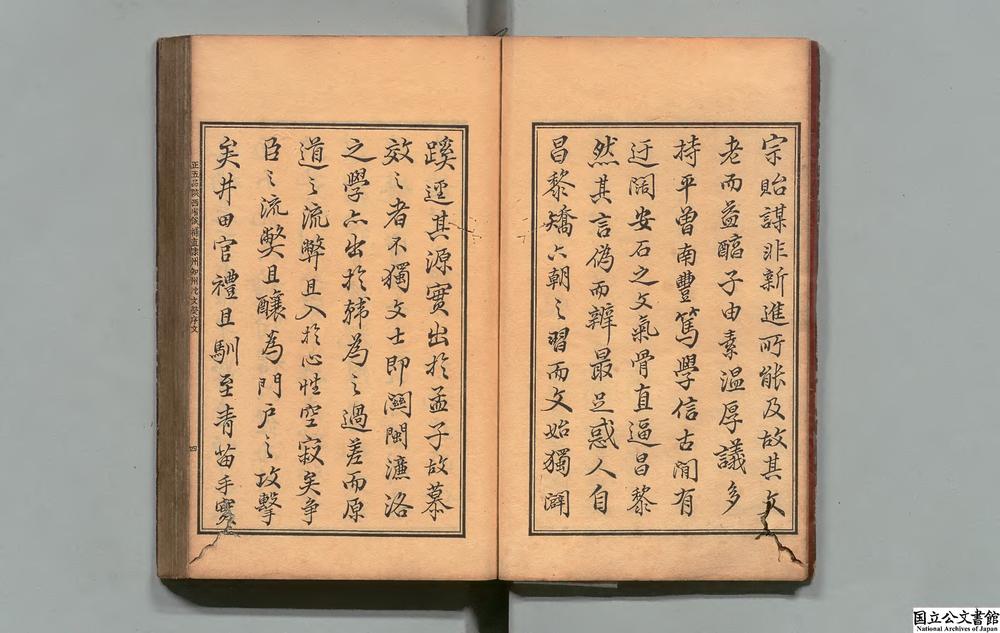 宗貽謀非新進所能及故其文
老而益醇子由素溫厚議多
持平曾南豐篤學信古閒有
迂闊安石之文氣骨直逼昌黎
然其言偽而辨最足惑人自
昌黎矯六朝之習而文始獨闢
蹊逕其源實出於孟子故慕
效之者不獨文士即關閩濂洛
之學亦出於韓為之過差而原
道之流弊且入於心性空寂矣爭
臣之流弊且釀為門戶之攻擊
矣井田官禮且馴至青苗手實
四
国立公文書館
National Archives of Japan